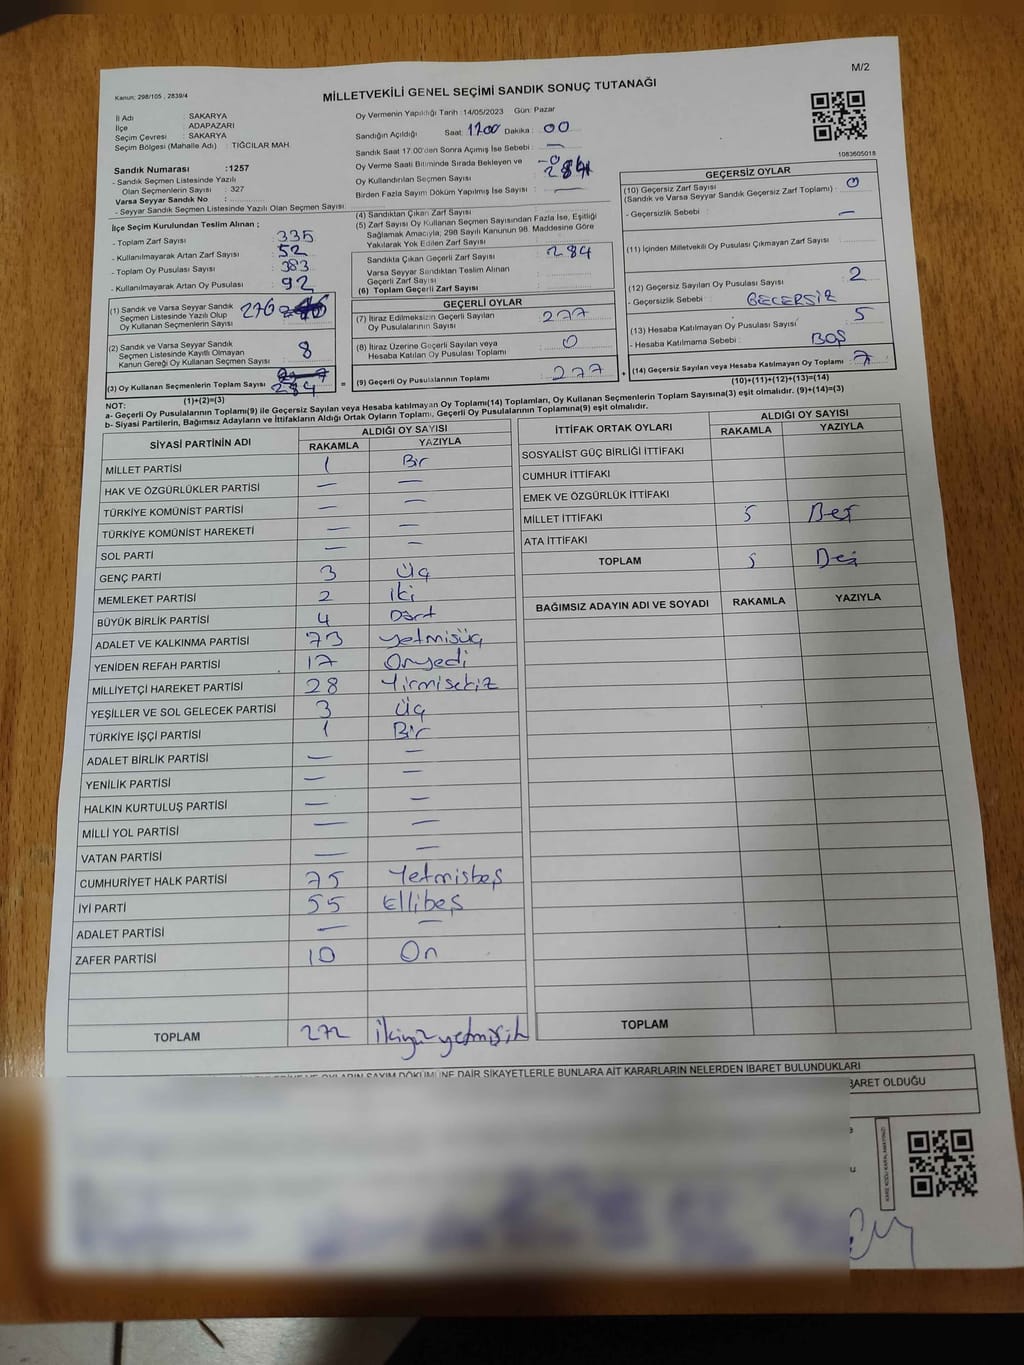 M/2
Kanun: 298/105 , 2839/4
MİLLETVEKİLİ GENEL SEÇİMİ SANDIK SONUÇ TUTANAĞI
İl Adı : SAKARYA
İlçe : ADAPAZARI
Seçim Çevresi : SAKARYA
Seçim Bölgesi (Mahalle Adı) : TIĞCILAR MAH.
Sandık Numarası : 1257
- Sandık Seçmen Listesinde Yazılı
Olan Seçmenlerin Sayısı : 327
Varsa Seyyar Sandık No :
- Seyyar Sandık Seçmen Listesinde Yazılı Olan Seçmen Sayısı:
İlçe Seçim Kurulundan Teslim Alınan ;
- Toplam Zarf Sayısı : 335
- Kullanılmayarak Artan Zarf Sayısı : 52
- Toplam Oy Pusulası Sayısı : 383
- Kullanılmayarak Artan Oy Pusulası : 92
(1) Sandık ve Varsa Seyyar Sandık
Seçmen Listesinde Yazılı Olup
Oy Kullanan Seçmenlerin Sayısı : 276
(2) Sandık ve Varsa Seyyar Sandık
Seçmen Listesinde Kayıtlı Olmayan
Kanun Gereği Oy Kullanan Seçmen Sayısı : 8
(3) Oy Kullanan Seçmenlerin Toplam Sayısı : 284
(1)+(2)=(3)
Oy Vermenin Yapıldığı Tarih :14/05/2023 Gün: Pazar
Sandığın Açıldığı Saat: 1700 Dakika : 00
Sandık Saat 17.00'den Sonra Açılmış İse Sebebi : —
Oy Verme Saati Bitiminde Sırada Bekleyen ve
Oy Kullandırılan Seçmen Sayısı
Birden Fazla Sayım Döküm Yapılmış İse Sayısı : —
(4) Sandıktan Çıkan Zarf Sayısı
(5) Zarf Sayısı Oy Kullanan Seçmen Sayısından Fazla İse, Eşitliği
Sağlamak Amacıyla; 298 Sayılı Kanunun 98. Maddesine Göre
Yakılarak Yok Edilen Zarf Sayısı :
Sandıkta Çıkan Geçerli Zarf Sayısı : 284
Varsa Seyyar Sandıktan Teslim Alınan
Geçerli Zarf Sayısı :
(6) Toplam Geçerli Zarf Sayısı :
GEÇERLİ OYLAR
(7) İtiraz Edilmeksizin Geçerli Sayılan
Oy Pusulalarının Sayısı : 277
(8) İtiraz Üzerine Geçerli Sayılan veya
Hesaba Katılan Oy Pusulası Toplamı : 0
= (9) Geçerli Oy Pusulalarının Toplamı : 277 +
GEÇERSİZ OYLAR
1083605018
(10) Geçersiz Zarf Sayısı
(Sandık ve Varsa Seyyar Sandık Geçersiz Zarf Toplamı) : 0
- Geçersizlik Sebebi : —
(11) İçinden Milletvekili Oy Pusulası Çıkmayan Zarf Sayısı :
(12) Geçersiz Sayılan Oy Pusulası Sayısı : 2
- Geçersizlik Sebebi : GEÇERSİZ
(13) Hesaba Katılmayan Oy Pusulası Sayısı : 5
- Hesaba Katılmama Sebebi : BOŞ
(14) Geçersiz Sayılan veya Hesaba Katılmayan Oy Toplamı : 7
(10)+(11)+(12)+(13)=(14)
NOT:
a- Geçerli Oy Pusulalarının Toplamı(9) ile Geçersiz Sayılan veya Hesaba katılmayan Oy Toplamı(14) Toplamları, Oy Kullanan Seçmenlerin Toplam Sayısına(3) eşit olmalıdır. (9)+(14)=(3)
b- Siyasi Partilerin, Bağımsız Adayların ve İttifakların Aldığı Ortak Oyların Toplamı, Geçerli Oy Pusulalarının Toplamına(9) eşit olmalıdır.
SİYASİ PARTİNİN ADI ALDIĞI OY SAYISI
RAKAMLA YAZIYLA
MİLLET PARTİSİ 1 Bir
HAK VE ÖZGÜRLÜKLER PARTİSİ — —
TÜRKİYE KOMÜNİST PARTİSİ — —
TÜRKİYE KOMÜNİST HAREKETİ — —
SOL PARTİ — —
GENÇ PARTİ 3 Üç
MEMLEKET PARTİSİ 2 İki
BÜYÜK BİRLİK PARTİSİ 4 Dört
ADALET VE KALKINMA PARTİSİ 73 Yetmişüç
YENİDEN REFAH PARTİSİ 17 Onyedi
MİLLİYETÇİ HAREKET PARTİSİ 28 Yirmisekiz
YEŞİLLER VE SOL GELECEK PARTİSİ 3 Üç
TÜRKİYE İŞÇİ PARTİSİ 1 Bir
ADALET BİRLİK PARTİSİ — —
YENİLİK PARTİSİ — —
HALKIN KURTULUŞ PARTİSİ — —
MİLLİ YOL PARTİSİ — —
VATAN PARTİSİ — —
CUMHURİYET HALK PARTİSİ 75 Yetmişbeş
İYİ PARTİ 55 Ellibeş
ADALET PARTİSİ — —
ZAFER PARTİSİ 10 On
TOPLAM 272 İkiyüzyetmişik
İTTİFAK ORTAK OYLARI ALDIĞI OY SAYISI
RAKAMLA YAZIYLA
SOSYALİST GÜÇ BİRLİĞİ İTTİFAKI
CUMHUR İTTİFAKI
EMEK VE ÖZGÜRLÜK İTTİFAKI
MİLLET İTTİFAKI 5 Beş
ATA İTTİFAKI
TOPLAM 5 Beş
BAĞIMSIZ ADAYIN ADI VE SOYADI RAKAMLA YAZIYLA
TOPLAM
OYLARIN SAYIM DÖKÜMÜNE DAİR ŞİKAYETLERLE BUNLARA AİT KARARLARIN NELERDEN İBARET BULUNDUKLARI
BARET OLDUĞU